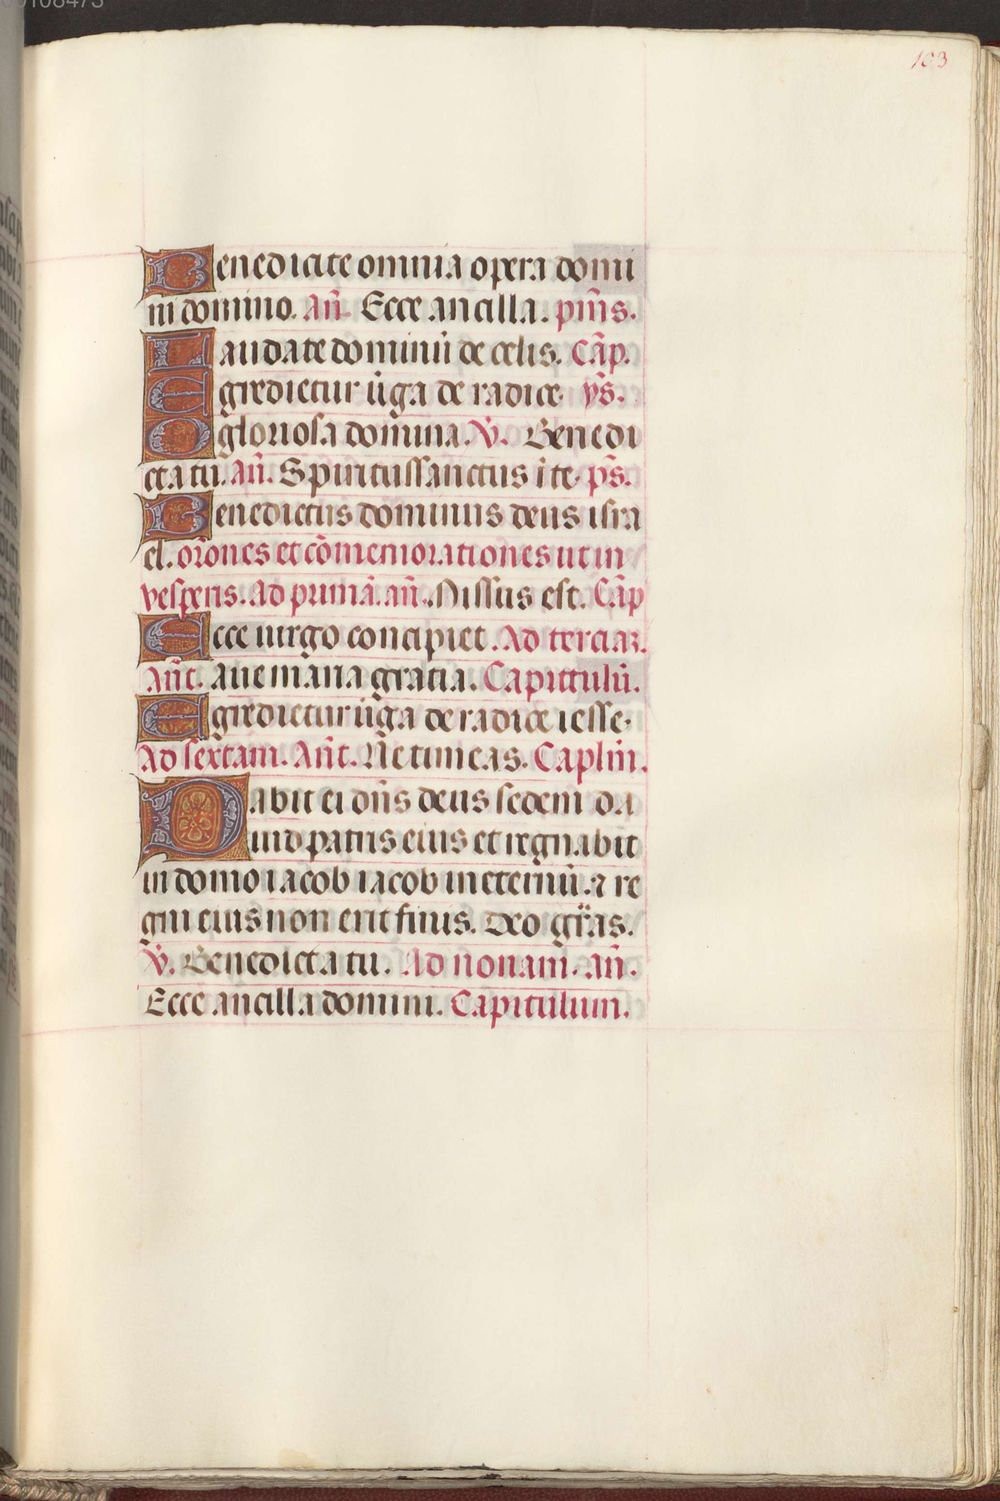 103
Benedicite omnia opera domi
ni domino. añ. Ecce ancilla. pm̃s.
Laudate dominũ de celis. Cãp.
Egredietur ũga de radice. ys̃.
O gloriosa domina. V̄. Benedi
cta tu. añ. Spiritussanctus ĩ te. ps̃.
Benedictus dominus deus isra
el. or̃ones et cõmemorationes ut in
vesperis. Ad primã. añ. Missus est. Cãp
Ecce uirgo concipiet. Ad terciaꝝ.
Añt. aue maria gratia. Capitulũ.
Egredietur ũga de radice iesse.
Ad sextam. Añt. Ne timeas. Caplm̃.
Dabit ei dñs deus sedem da
uid patris eius et regnabit
in domo iacob iacob in eternũ. ⁊ re
gni eius non erit finis. Deo gr̃as.
V̄. Benedicta tu. Ad nonam. añ.
Ecce ancilla domini. Capitulum.